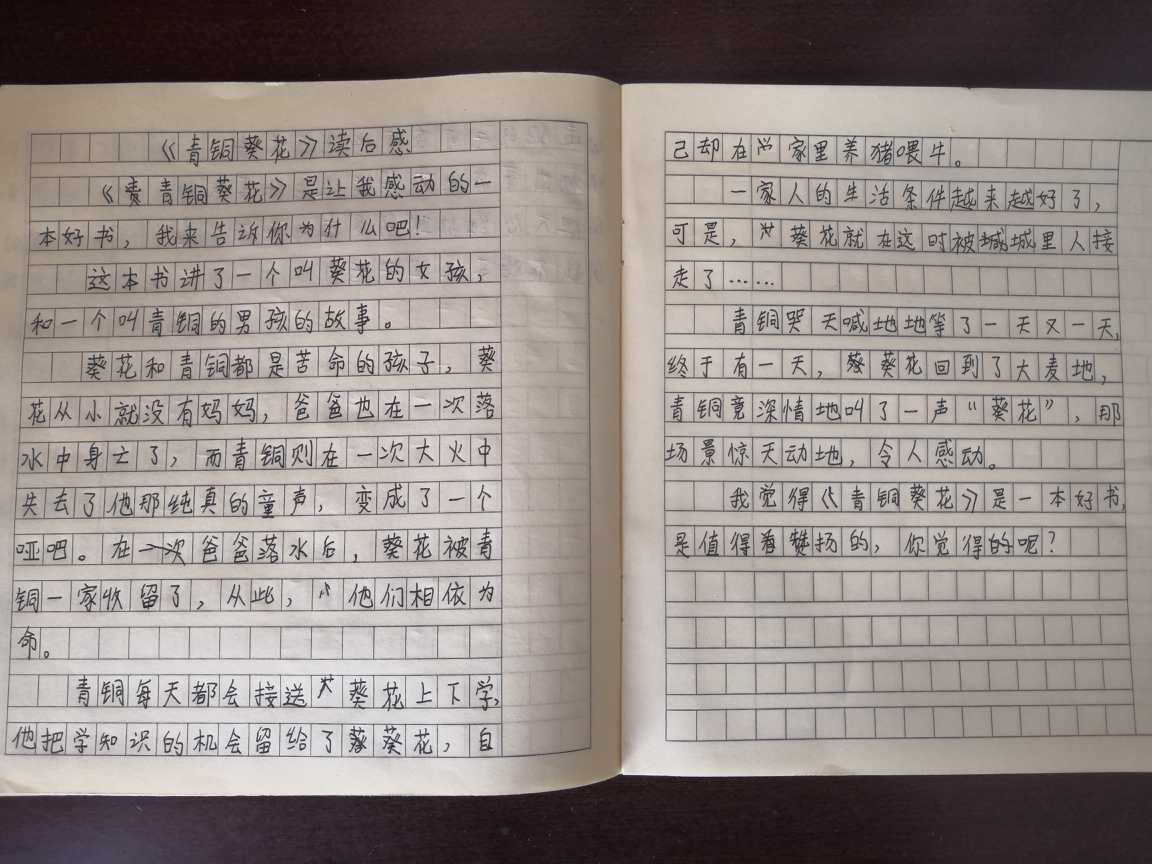 《青铜葵花》读后感
《青铜葵花》是让我感动的一
本好书，我来告诉你为什么吧！
这本书讲了一个叫葵花的女孩，
和一个叫青铜的男孩的故事。
葵花和青铜都是苦命的孩子，葵
花从小就没有妈妈，爸爸也在一次落
水中身亡了，而青铜则在一次大火中
失去了他那纯真的童声，变成了一个
哑吧。在一次爸爸落水后，葵花被青
铜一家收留了，从此，他们相依为
命。
青铜每天都会接送葵花上下学，
他把学知识的机会留给了葵花，自
己却在家里养猪喂牛。
一家人的生活条件越来越好了，
可是，葵花就在这时被城里人接
走了……
青铜哭天喊地地等了一天又一天，
终于有一天，葵花回到了大麦地，
青铜竟深情地叫了一声“葵花”，那
场景惊天动地，令人感动。
我觉得《青铜葵花》是一本好书，
是值得赞扬的，你觉得的呢？